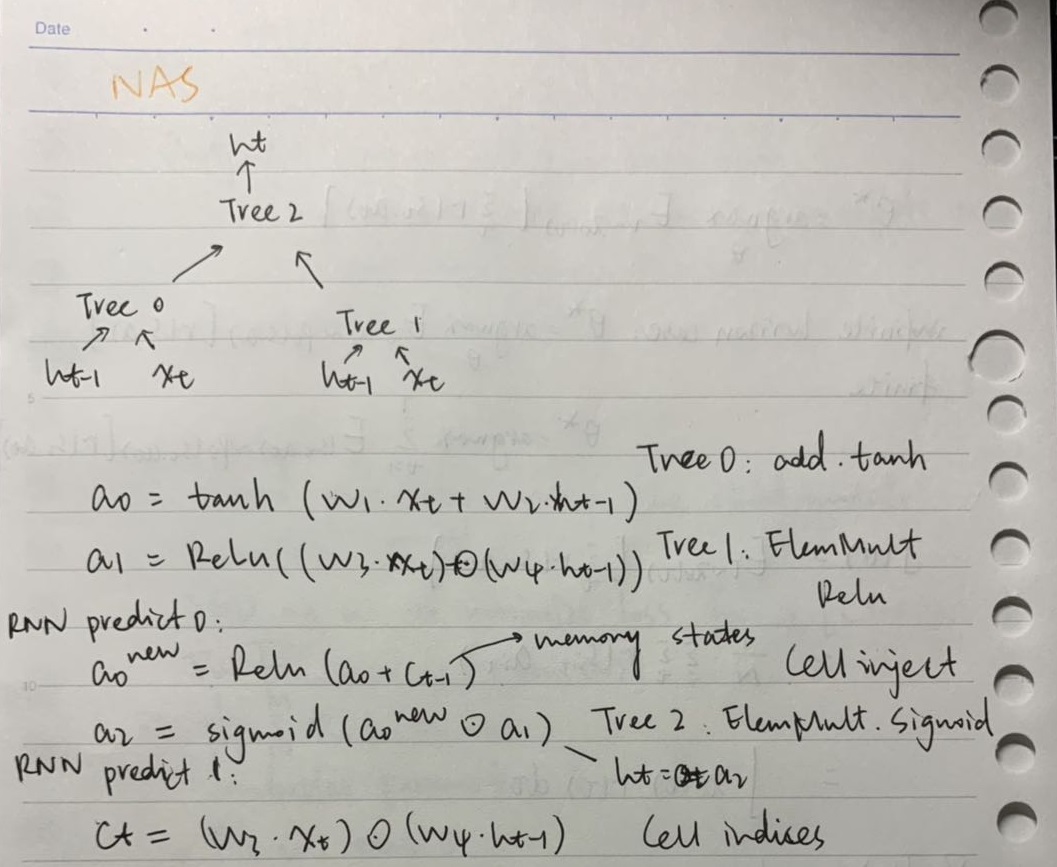 Date
NAS
ht
↑
Tree 2
Tree 0
Tree 1
ht-1 xt
ht-1 xt
5
Tree 0: add. tanh
a0 = tanh (W1 · xt + W2 · ht-1)
a1 = Relu((W3 · xt) ⊙ (W4 · ht-1)) Tree 1: ElemMult
Relu
RNN predict 0:
→ memory states
a0^new = Relu (a0 + Ct-1) Cell inject
10
a2 = sigmoid (a0^new ⊙ a1) Tree 2: ElemMult. Sigmoid
RNN predict 1:
ht = a2
Ct = (W3 · xt) ⊙ (W4 · ht-1) Cell indises